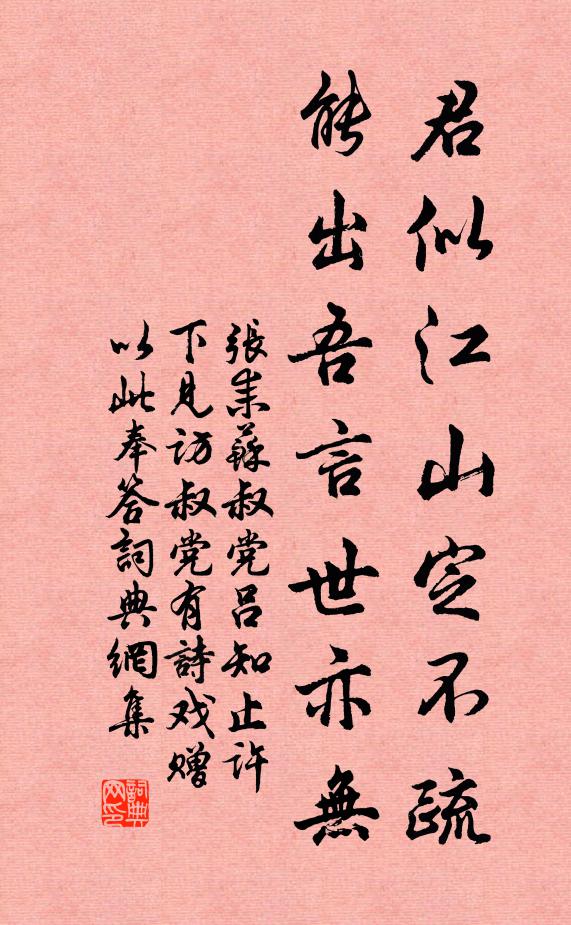 君似江山定不疏
能出吾言世亦無
張耒蘇叔党呂知止許
下見訪叔党有詩戏贈
以此奉答詞典網集
詞典网印